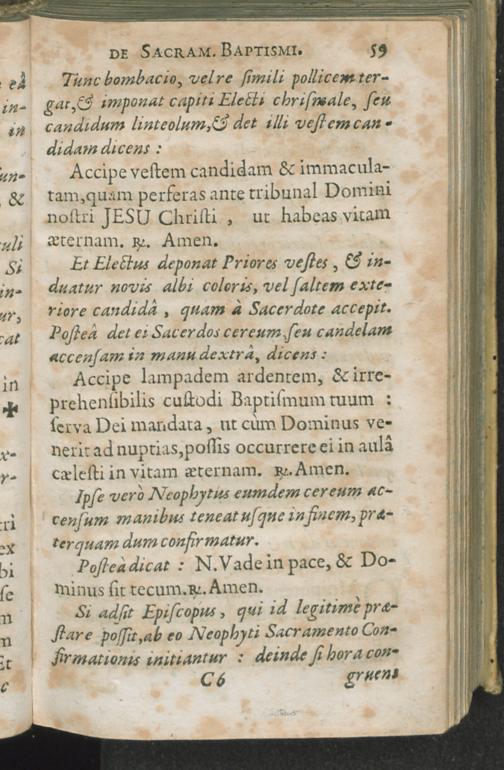 DE SACRAM. BAPTISMI. 59
Tunc bombacio, vel re ſimili pollicem ter-
gat, & imponat capiti Electi chriſmale, ſeu
candidum linteolum, & det illi veſtem can-
didam dicens :
Accipe veſtem candidam & immacula-
tam, quam perferas ante tribunal Domini
noſtri JESU Chriſti , ut habeas vitam
æternam. ℟. Amen.
Et Electus deponat Priores veſtes , & in-
duatur novis albi coloris, vel ſaltem exte-
riore candidâ , quam à Sacerdote accepit.
Poſteâ det ei Sacerdos cereum, ſeu candelam
accenſam in manu dextrâ, dicens :
Accipe lampadem ardentem, & irre-
prehenſibilis cuſtodi Baptiſmum tuum :
ſerva Dei mandata, ut cùm Dominus ve-
nerit ad nuptias, poſſis occurrere ei in aulâ
cæleſti in vitam æternam. ℟. Amen.
Ipſe verò Neophytus eumdem cereum ac-
cenſum manibus teneat uſque in finem, præ-
terquam dum confirmatur.
Poſteà dicat : N. Vade in pace, & Do-
minus ſit tecum. ℟. Amen.
Si adſit Epiſcopus, qui id legitimè præ-
ſtare poſſit, ab eo Neophyti Sacramento Con-
firmationis initiantur : deinde ſi hora con-
C6 gruens